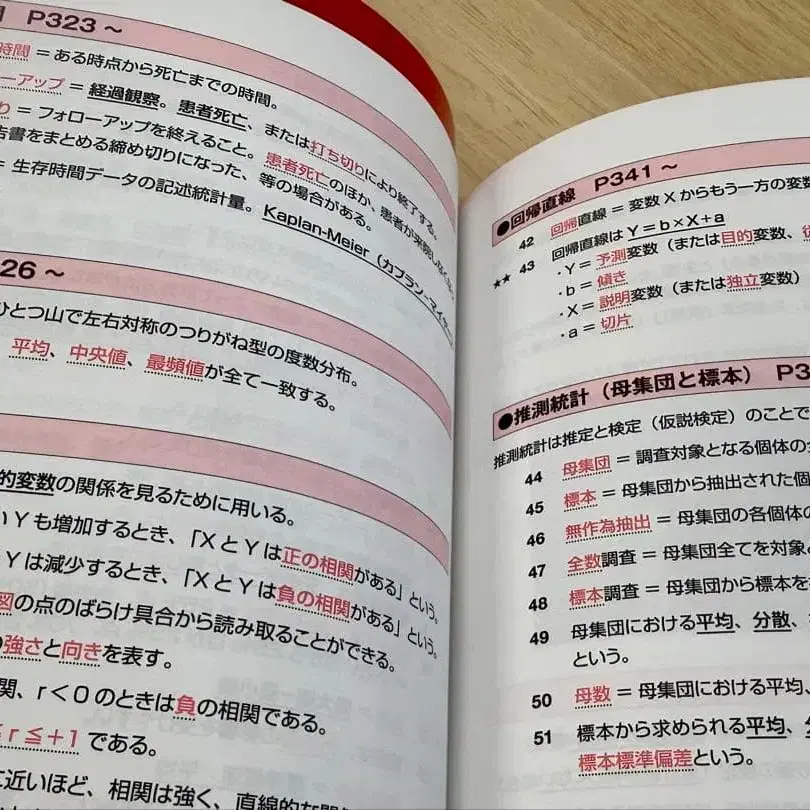 P323～
時間 = ある時点から死亡までの時間。
ーアップ = 経過観察。患者死亡、または打ち切りにより終了する。
り = フォローアップを終えること。患者死亡のほか、患者が来院しなくな
告書をまとめる締め切りになった、等の場合がある。
= 生存時間データの記述統計量。Kaplan-Meier（カプラン-マイヤー
26～
ひとつ山で左右対称のつりがね型の度数分布。
平均、中央値、最頻値が全て一致する。
的変数の関係を見るために用いる。
Yも増加するとき、「XとYは正の相関がある」という。
Yは減少するとき、「XとYは負の相関がある」という。
図の点のばらけ具合から読み取ることができる。
の強さと向きを表す。
関、r＜0のときは負の相関である。
≦r≦+1である。
に近いほど、相関は強く、直線的な関
●回帰直線 P341～
42 回帰直線 = 変数Xからもう一方の変数
★★ 43 回帰直線は Y=b×X+a
・Y = 予測変数（または目的変数、従
・b = 傾き
・X = 説明変数（または独立変数）
・a = 切片
●推測統計（母集団と標本） P3
推測統計は推定と検定（仮説検定）のことで
44 母集団 = 調査対象となる個体の
45 標本 = 母集団から抽出された個
46 無作為抽出 = 母集団の各個体の
47 全数調査 = 母集団全てを対象
48 標本調査 = 母集団から標本を
49 母集団における平均、分散、
という。
50 母数 = 母集団における平均、
51 標本から求められる平均、分
標本標準偏差という。